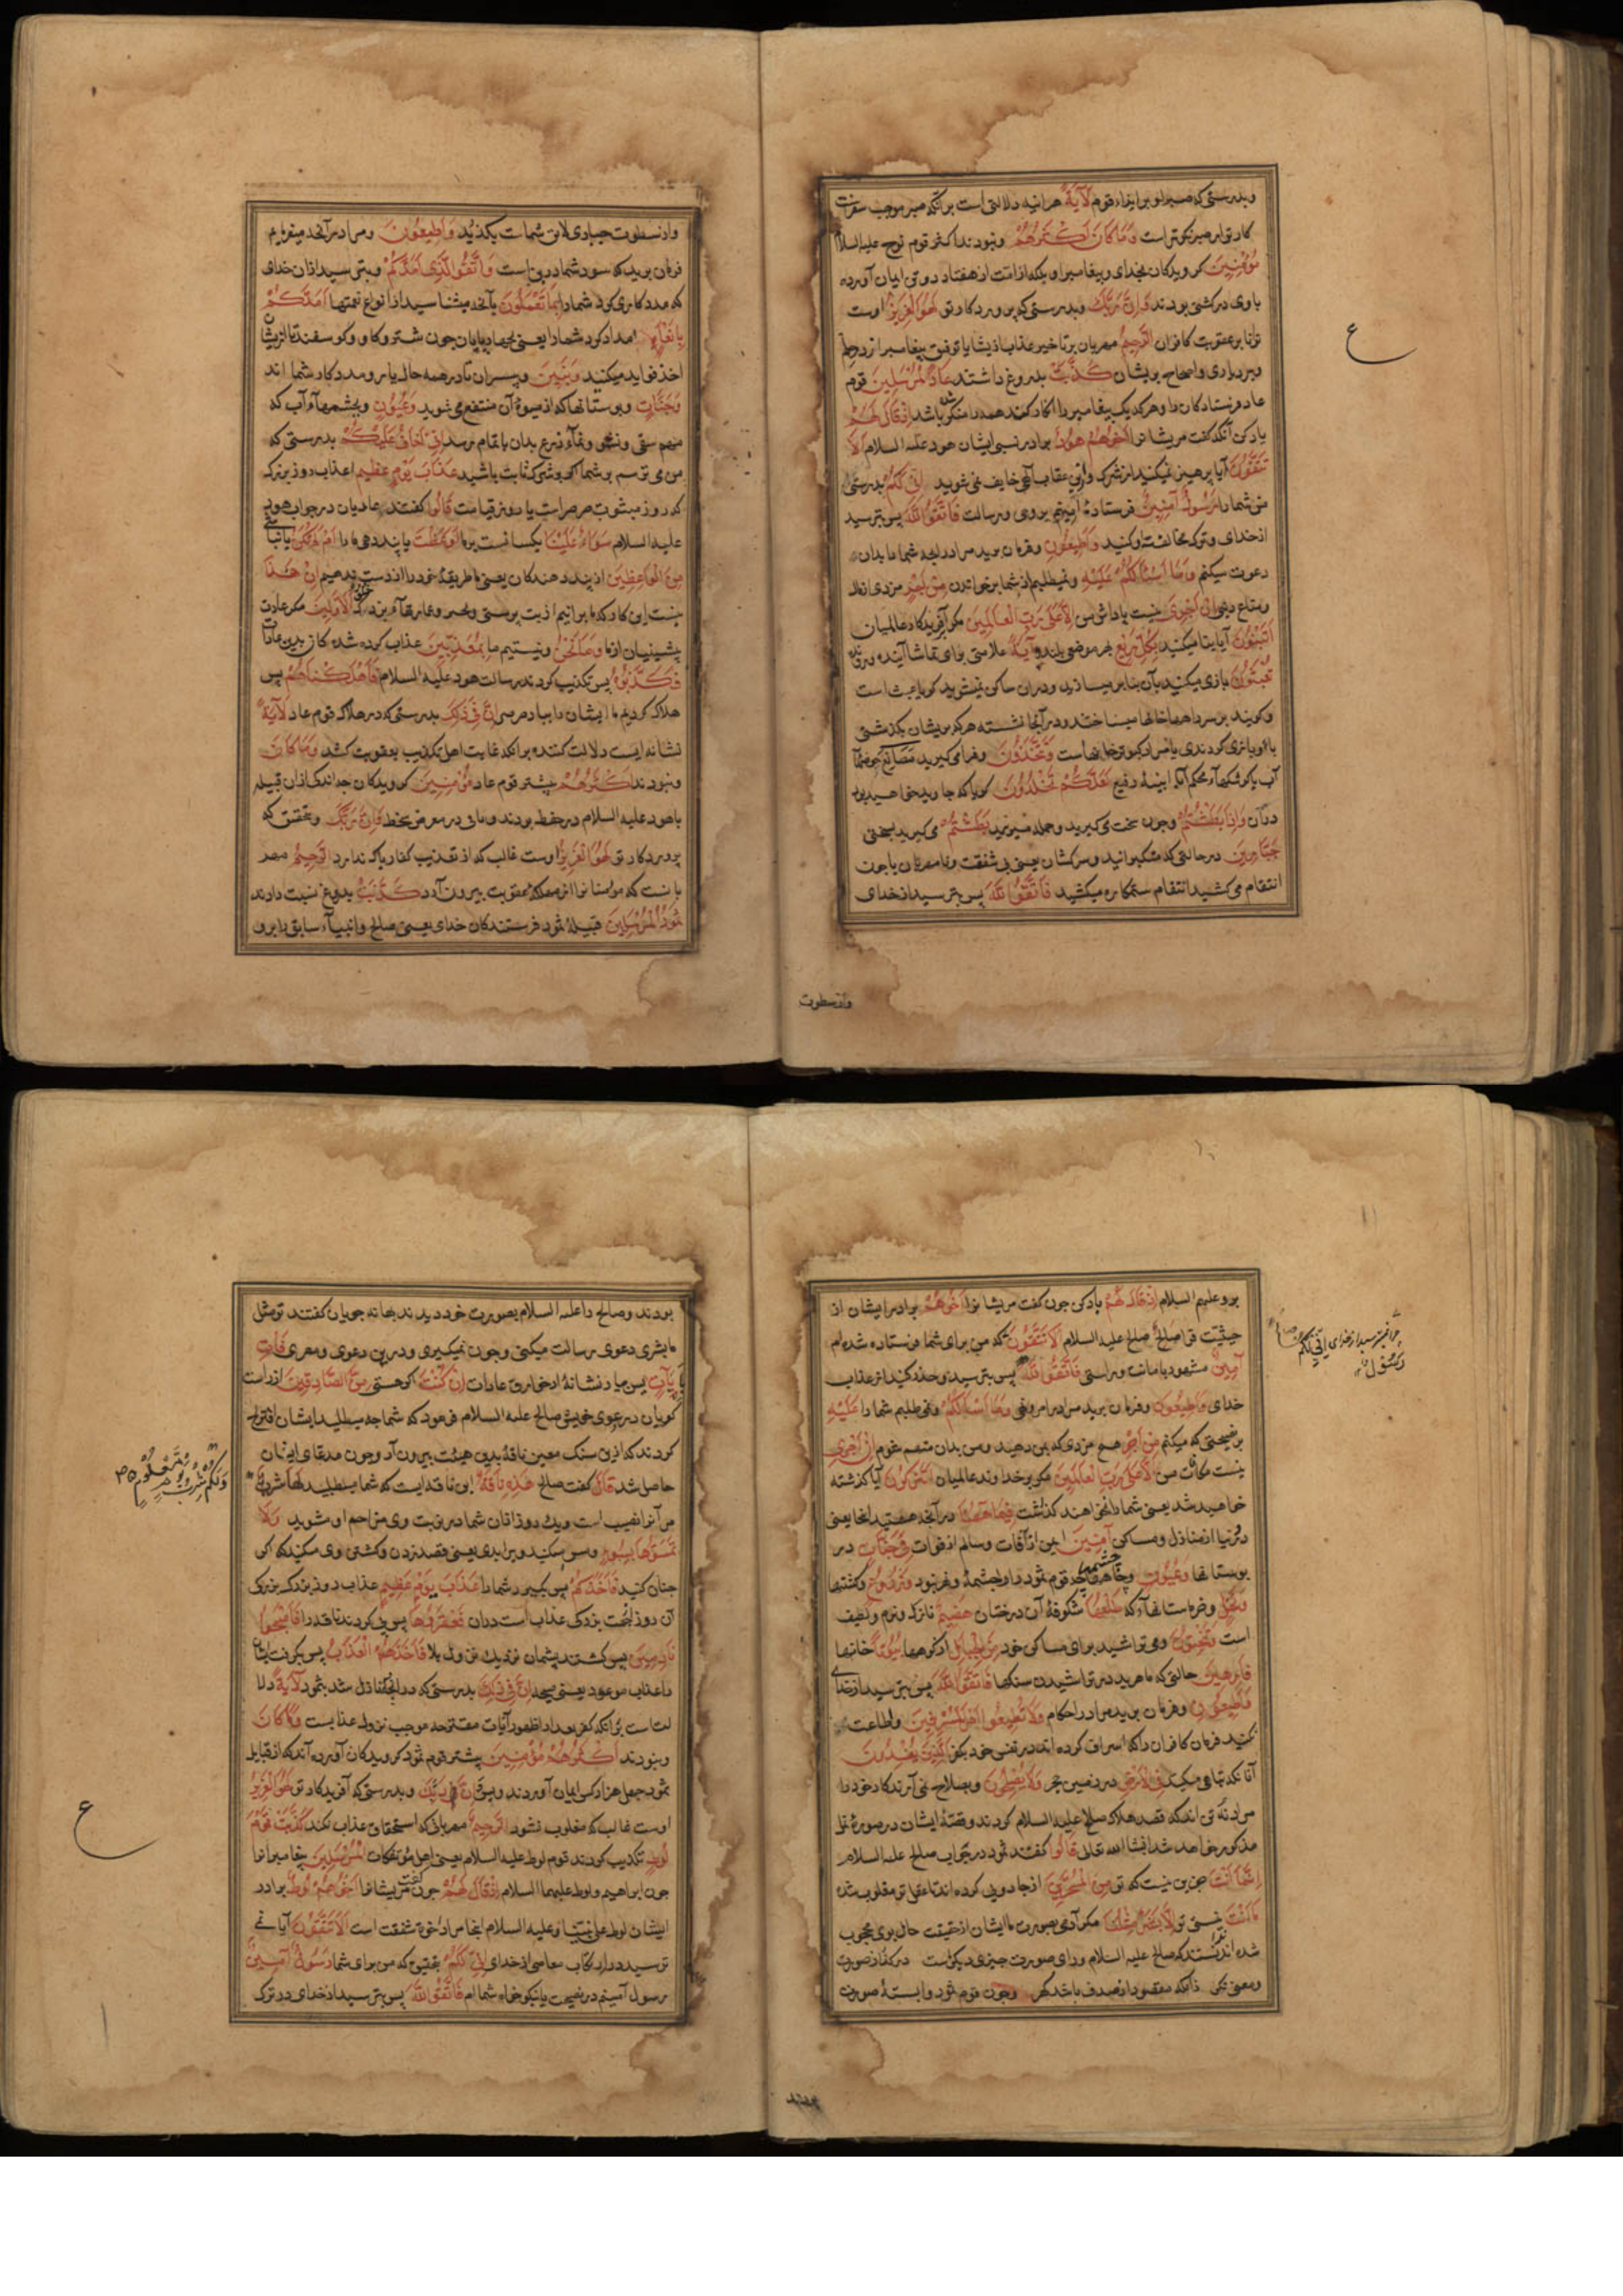 وبدرستی که صبر او بر ایذاء قوم لَآيَةً هر اینه دلالتی است بر آنکه صبر موجب
کار تو امر صبر نکوتر است وَمَا كَانَ أَكْثَرُهُمْ ونبودند اکثر قوم نوح علیه السلام
مُؤْمِنِينَ کرویدکان بخدای وپیغامبر او بلکه از امت از هفتاد دو تن ایمان آورده
با وی در کشتی بودند وَإِنَّ رَبَّكَ وبدرستی که پروردکار تو لَهُوَ الْعَزِيزُ اوست
توانا بر عقوبت کافران الرَّحِيمُ مهربان بتاخیر عذاب از یشان یا توفیق پیغامبر از در حلم
وبردباری والحاح بریشان كَذَّبَتْ بدروغ داشتند عَادٌ الْمُرْسَلِينَ قوم
عاد فرستادکان را وهر که یک پیغامبر را انکار کند همه را منکر باشد إِذْ قَالَ لَهُمْ
یاد کن آنکه کفت مریشانرا أَخُوهُمْ هُودٌ برادر نسبی ایشان هود علیه السلام أَلَا
تَتَّقُونَ آیا پرهیز نمیکنید از شرک واز عقاب آلهی خایف نمی شوید إِنِّي لَكُمْ بدرستی
من شما را رَسُولٌ أَمِينٌ فرستادهٔ امینم بروی ورسالت فَاتَّقُوا اللَّهَ پس بترسید
از خدای وترک مخالفت او کنید وَأَطِيعُونِ وفرمان برید مرا در انچه شما را بدان
دعوت میکنم وَمَا أَسْأَلُكُمْ عَلَيْهِ ونمیطلبم از شما بر خواندن مِنْ أَجْرٍ مزدی از مال
ومتاع دنیی إِنْ أَجْرِيَ نیست پاداش من إِلَّا عَلَى رَبِّ الْعَالَمِينَ مکر آفریدکار عالمیان
أَتَبْنُونَ آیا بنا میکنید بِكُلِّ رِيعٍ بهر موضعی بلند آيَةً علامتی برای تماشا آینده ورونده
تَعْبَثُونَ بازی میکنید بآن بنا بر میسازید ودران ساکن نمیشوید کویا عبث است
وکویند بر سر راهها خانها میساختند ودر آنجا نشسته هر که بریشان بکذشتی
با او بازی کردندی یا مراد کبوتر خانهاست وَتَتَّخِذُونَ وفرا می کیرید مَصَانِعَ حوضها
آب یا کوشکهاء محکم یا ابنیهٔ رفیع لَعَلَّكُمْ تَخْلُدُونَ کویا که جاوید خواهید بود
در آن وَإِذَا بَطَشْتُمْ وچون سخت می کیرید وحمله میبرید بَطَشْتُمْ می کیرید بسختی
جَبَّارِينَ در حالتی که متکبرانید وسرکشان یعنی بی شفقت ونا مهربان یا چون
انتقام می کشید انتقام ستمکاره میکشید فَاتَّقُوا اللَّهَ پس بترسید از خدای
واز سطوت
ع
واز سطوت جباری لایق شماست بکذرید وَأَطِيعُونَ ومرا در آنچه میفرمایم
فرمان برید که سود شما درین است وَاتَّقُوا الَّذِي أَمَدَّكُمْ وبترسید ازان خدای
که مددکاری کرد شما را بِمَا تَعْلَمُونَ بآنچه میشناسید از انواع نعمتها أَمَدَّكُمْ
بِأَنْعَامٍ امداد کرد شما را یعنی بچهارپایان چون شتر وکاو وکوسفند تا از یشان
اخذ فواید میکنید وَبَنِينَ وپسران تا در همه حال یار ومددکار شما اند
وَجَنَّاتٍ وبوستانها که از میوهٔ آن منتفع می شوید وَعُيُونٍ وبچشمهاء آب که
مهم سقی ونشو ونماء زرع بدان باتمام رسد إِنِّي أَخَافُ عَلَيْكُمْ بدرستی که
من می ترسم بر شما اکر بر شرک ثابت باشید عَذَابَ يَوْمٍ عَظِيمٍ عذاب روز بزرک
که روز هبوب صرصرست یا روز قیامت قَالُوا کفتند عادیان در جواب هود
علیه السلام سَوَاءٌ عَلَيْنَا یکسانست بر ما أَوَعَظْتَ یا پند دهی ما را أَمْ لَمْ تَكُنْ یا نباشی
مِنَ الْوَاعِظِينَ از پند دهندکان یعنی ما طریقهٔ خود را از دست ندهیم إِنْ هَذَا
نیست این کار که ما برانیم از بت پرستی إِلَّا خُلُقُ الْأَوَّلِينَ مکر عادت
پیشینیان از ما وَمَا نَحْنُ ونیستیم ما بِمُعَذَّبِينَ عذاب کرده شده کان بدین عادات
فَكَذَّبُوهُ پس تکذیب کردند برسالت هود علیه السلام فَأَهْلَكْنَاهُمْ پس
هلاک کردیم ما ایشان را بباد صرصر إِنَّ فِي ذَلِكَ بدرستی که در هلاک قوم عاد لَآيَةً
نشانه ایست دلالت کننده بر آنکه غایت اهل تکذیب بعقوبت کشد وَمَا كَانَ
ونبودند أَكْثَرُهُمْ بیشتر قوم عاد مُؤْمِنِينَ کرویدکان چه اندک ازان قبیله
با هود علیه السلام در حفظ بودند وباقی در معرض سخط وَإِنَّ رَبَّكَ وبتحقیق که
پروردکار تو لَهُوَ الْعَزِيزُ اوست غالب که از تعذیب کفار باک ندارد الرَّحِيمُ مهر
بانست که مؤمنانرا از مهلکهٔ عقوبت بیرون آرد كَذَّبَتْ بدروغ نسبت دادند
ثَمُودُ الْمُرْسَلِينَ قبیلهٔ ثمود فرستندکان خدای یعنی صالح وانبیاء سابق را برو
برو علیهم السلام إِذْ قَالَ لَهُمْ یاد کن چون کفت مریشانرا أَخُوهُمْ برادر ایشان از
حیثیت قرابت صَالِحٌ صالح علیه السلام أَلَا تَتَّقُونَ که من برای شما فرستاده شده ام
أَمِينٌ مشهود بامانت وراستی فَاتَّقُوا اللَّهَ پس بترسید وحذر کنید از عذاب
خدای وَأَطِيعُونِ وفرمان برید مرا در امر ونهی وَمَا أَسْأَلُكُمْ ونمی طلبم شما را عَلَيْهِ
بر نصیحتی که میکنم مِنْ أَجْرٍ هیچ مزدی که بمن دهید ومن بدان متهم شوم إِنْ أَجْرِيَ
نیست مکافات من إِلَّا عَلَى رَبِّ الْعَالَمِينَ مکر بر خداوند عالمیان أَتُتْرَكُونَ آیا کذشته
خواهید شد یعنی شما را نخواهند کذاشت فِيمَا هَاهُنَا در آنچه هستید اینجا یعنی
در دنیا از منازل ومساکن آمِنِينَ ایمن از آفات وسالم از فوات فِي جَنَّاتٍ در
بوستانها وَعُيُونٍ وچشمها وَزُرُوعٍ وکشتها
وَنَخْلٍ وخرماستانهاء که طَلْعُهَا شکوفهٔ آن درختان هَضِيمٌ نازک ونرم ولطیف
است وَتَنْحِتُونَ ومی تراشید برای مساکن خود مِنَ الْجِبَالِ از کوهها بُيُوتًا خانها
فَارِهِينَ حالتی که ماهرید در تراشیدن سنکها فَاتَّقُوا اللَّهَ پس بترسید از خدای
وَأَطِيعُونِ وفرمان برید مرا در احکام وَلَا تُطِيعُوا أَمْرَ الْمُسْرِفِينَ واطاعت
نکنید فرمان کافران را که اسراف کرده اند در نفس خود بکفر الَّذِينَ يُفْسِدُونَ
آنانکه تباهی میکنند فِي الْأَرْضِ در زمین حجر وَلَا يُصْلِحُونَ وبصلاح نمی آرند کار خود را
مراد نه تن اند که قصد هلاک صالح علیه السلام کردند وقصهٔ ایشان در سورهٔ نمل
مذکور خواهد شد انشاالله تعالی قَالُوا کفتند ثمود در جواب صالح علیه السلام
إِنَّمَا أَنْتَ جزین نیست که تو مِنَ الْمُسَحَّرِينَ از جادویی کرده اند تا عقل تو مغلوب شده
مَا أَنْتَ نیستی تو إِلَّا بَشَرٌ مِثْلُنَا مکر آدمی بصورت ما ایشان از حقیقت حال بوی محجوب
شده ندانستند که صالح علیه السلام ورای صورت چیزی دیکرست در کفار صورت
ومعنی نکر زانکه مقصود از صدف باشد کهر وچون قوم ثمود وابستهٔ صورت
چرا نمیترسید از خدای إِنِّي لَكُمْ
رَسُولٌ
بودند
بودند وصالح را علیه السلام بصورت خود دیدند بهانه جویان کفتند تو مثل
ما بشری دعوی رسالت میکنی وچون نمیکیری ودرین دعوی ومصری فَأْتِ
بِآيَةٍ پس بیار نشانهٔ از خوارق عادات إِنْ كُنْتَ اکر هستی مِنَ الصَّادِقِينَ از راست
کویان در دعوی خویش صالح علیه السلام فرمود که شما چه میطلبید ایشان اقتراح
کردند که ازین سنک معین ناقهٔ بدین هیئت بیرون آر وچون مدعای ایشان
حاصل شد قَالَ کفت صالح هَذِهِ نَاقَةٌ این ناقه ایست که شما میطلبید لَهَا شِرْبٌ
مر آنرا نصیب است ویک روز ازان شما در نوبت وی مزاحم او شوید وَلَا
تَمَسُّوهَا بِسُوءٍ ومس مکنید ویرا ببدی یعنی قصد زدن وکشتن وی مکنید که اکر
چنان کنید فَيَأْخُذَكُمْ پس بکیرد شما را عَذَابُ يَوْمٍ عَظِيمٍ عذاب روز بزرک بزرکی
آن روز بجهت بزرکی عذاب است دران فَعَقَرُوهَا پس پی کردند ناقه را فَأَصْبَحُوا
نَادِمِينَ پس کشتند پشیمان نزدیک نزول بلا فَأَخَذَهُمُ الْعَذَابُ پس بکرفت یشان
را عذاب موعود یعنی صیحه إِنَّ فِي ذَلِكَ بدرستی که در انچه نازل شد بثمود لَآيَةً دلا
لت است بر آنکه کفر بعد از ظهور آیات مقترحه موجب نزول عذابست وَمَا كَانَ
ونبودند أَكْثَرُهُمْ مُؤْمِنِينَ بیشتر قوم ثمود کرویدکان آورده اند که از قبایل
ثمود چهل هزار کس ایمان آوردند وَإِنَّ رَبَّكَ وبدرستی که آفریدکار تو لَهُوَ الْعَزِيزُ
اوست غالب که مغلوب نشود الرَّحِيمُ مهربانی که استحقاق عذاب نکند كَذَّبَتْ قَوْمُ
لُوطٍ تکذیب کردند قوم لوط علیه السلام یعنی اهل مؤتفکات الْمُرْسَلِينَ پیغامبرانرا
چون ابراهیم ولوط علیهما السلام إِذْ قَالَ لَهُمْ چون کفت مریشانرا أَخُوهُمْ لُوطٌ برادر
ایشان لوط علی نبینا وعلیه السلام اینجا مراد اخوت شفقت است أَلَا تَتَّقُونَ آیا نمی
ترسید در ارتکاب معاصی از خدای إِنِّي لَكُمْ بتحقیق که من برای شما رَسُولٌ أَمِينٌ
رسول امینم در نصیحت یا نیکو خواه شما ام فَاتَّقُوا اللَّهَ پس بترسید از خدای در ترک
وَلَكُمْ شِرْبُ يَوْمٍ مَعْلُومٍ
ع